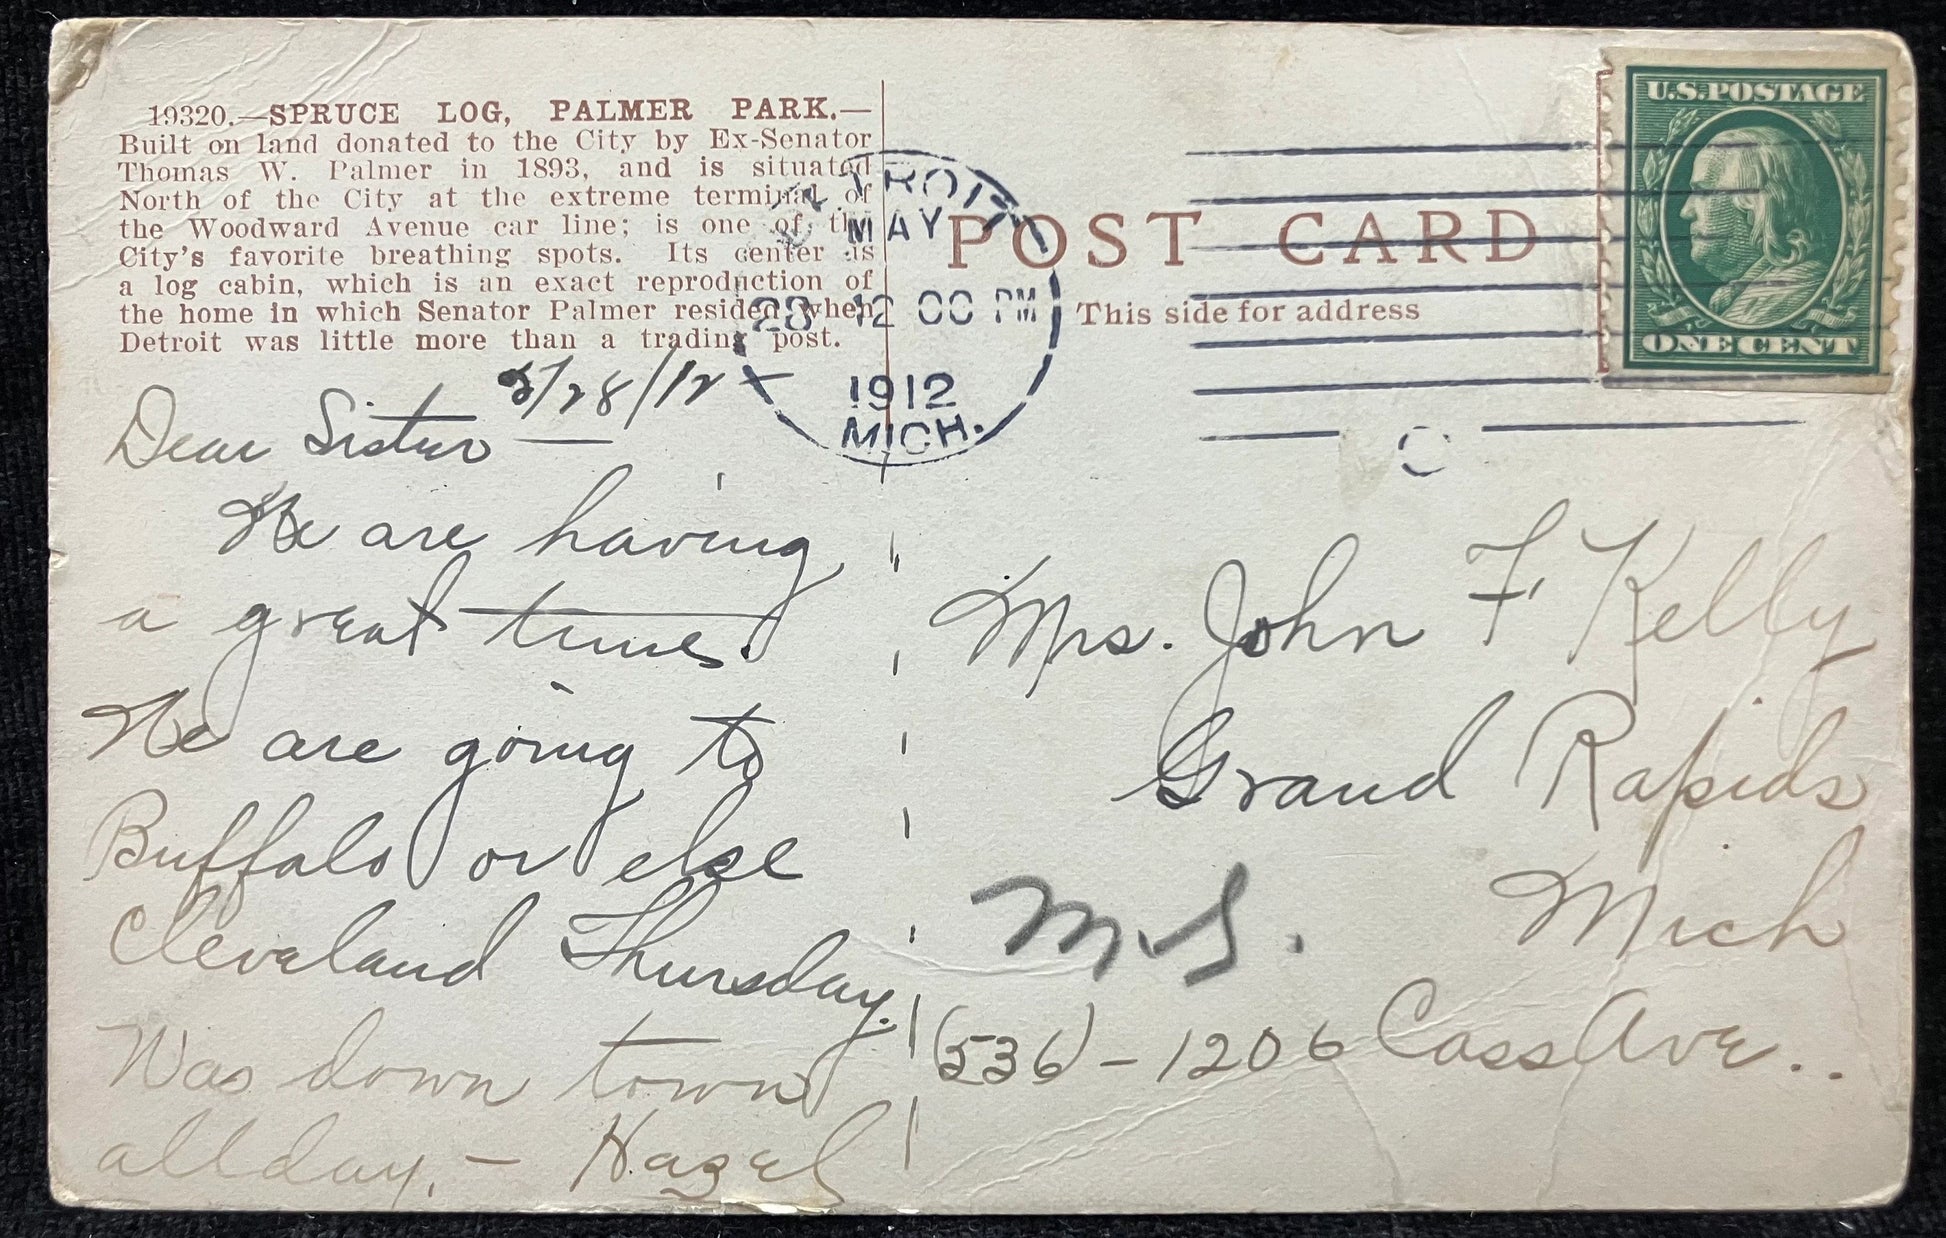 19320.—SPRUCE LOG, PALMER PARK.—
Built on land donated to the City by Ex-Senator
Thomas W. Palmer in 1893, and is situated
North of the City at the extreme terminal of
the Woodward Avenue car line; is one of the
City's favorite breathing spots. Its center is
a log cabin, which is an exact reproduction of
the home in which Senator Palmer resided when
Detroit was little more than a trading post.
5/28/12
Dear Sister
We are having
a great time.
We are going to
Buffalo or else
Cleveland Thursday.
Was down town
all day. — Hazel
DETROIT
MAY
28 12 00 PM
1912
MICH.
POST CARD
This side for address
U.S. POSTAGE
ONE CENT
Mrs. John F Kelly
Grand Rapids
Mich
M.S.
(536) - 1206 Cass Ave..